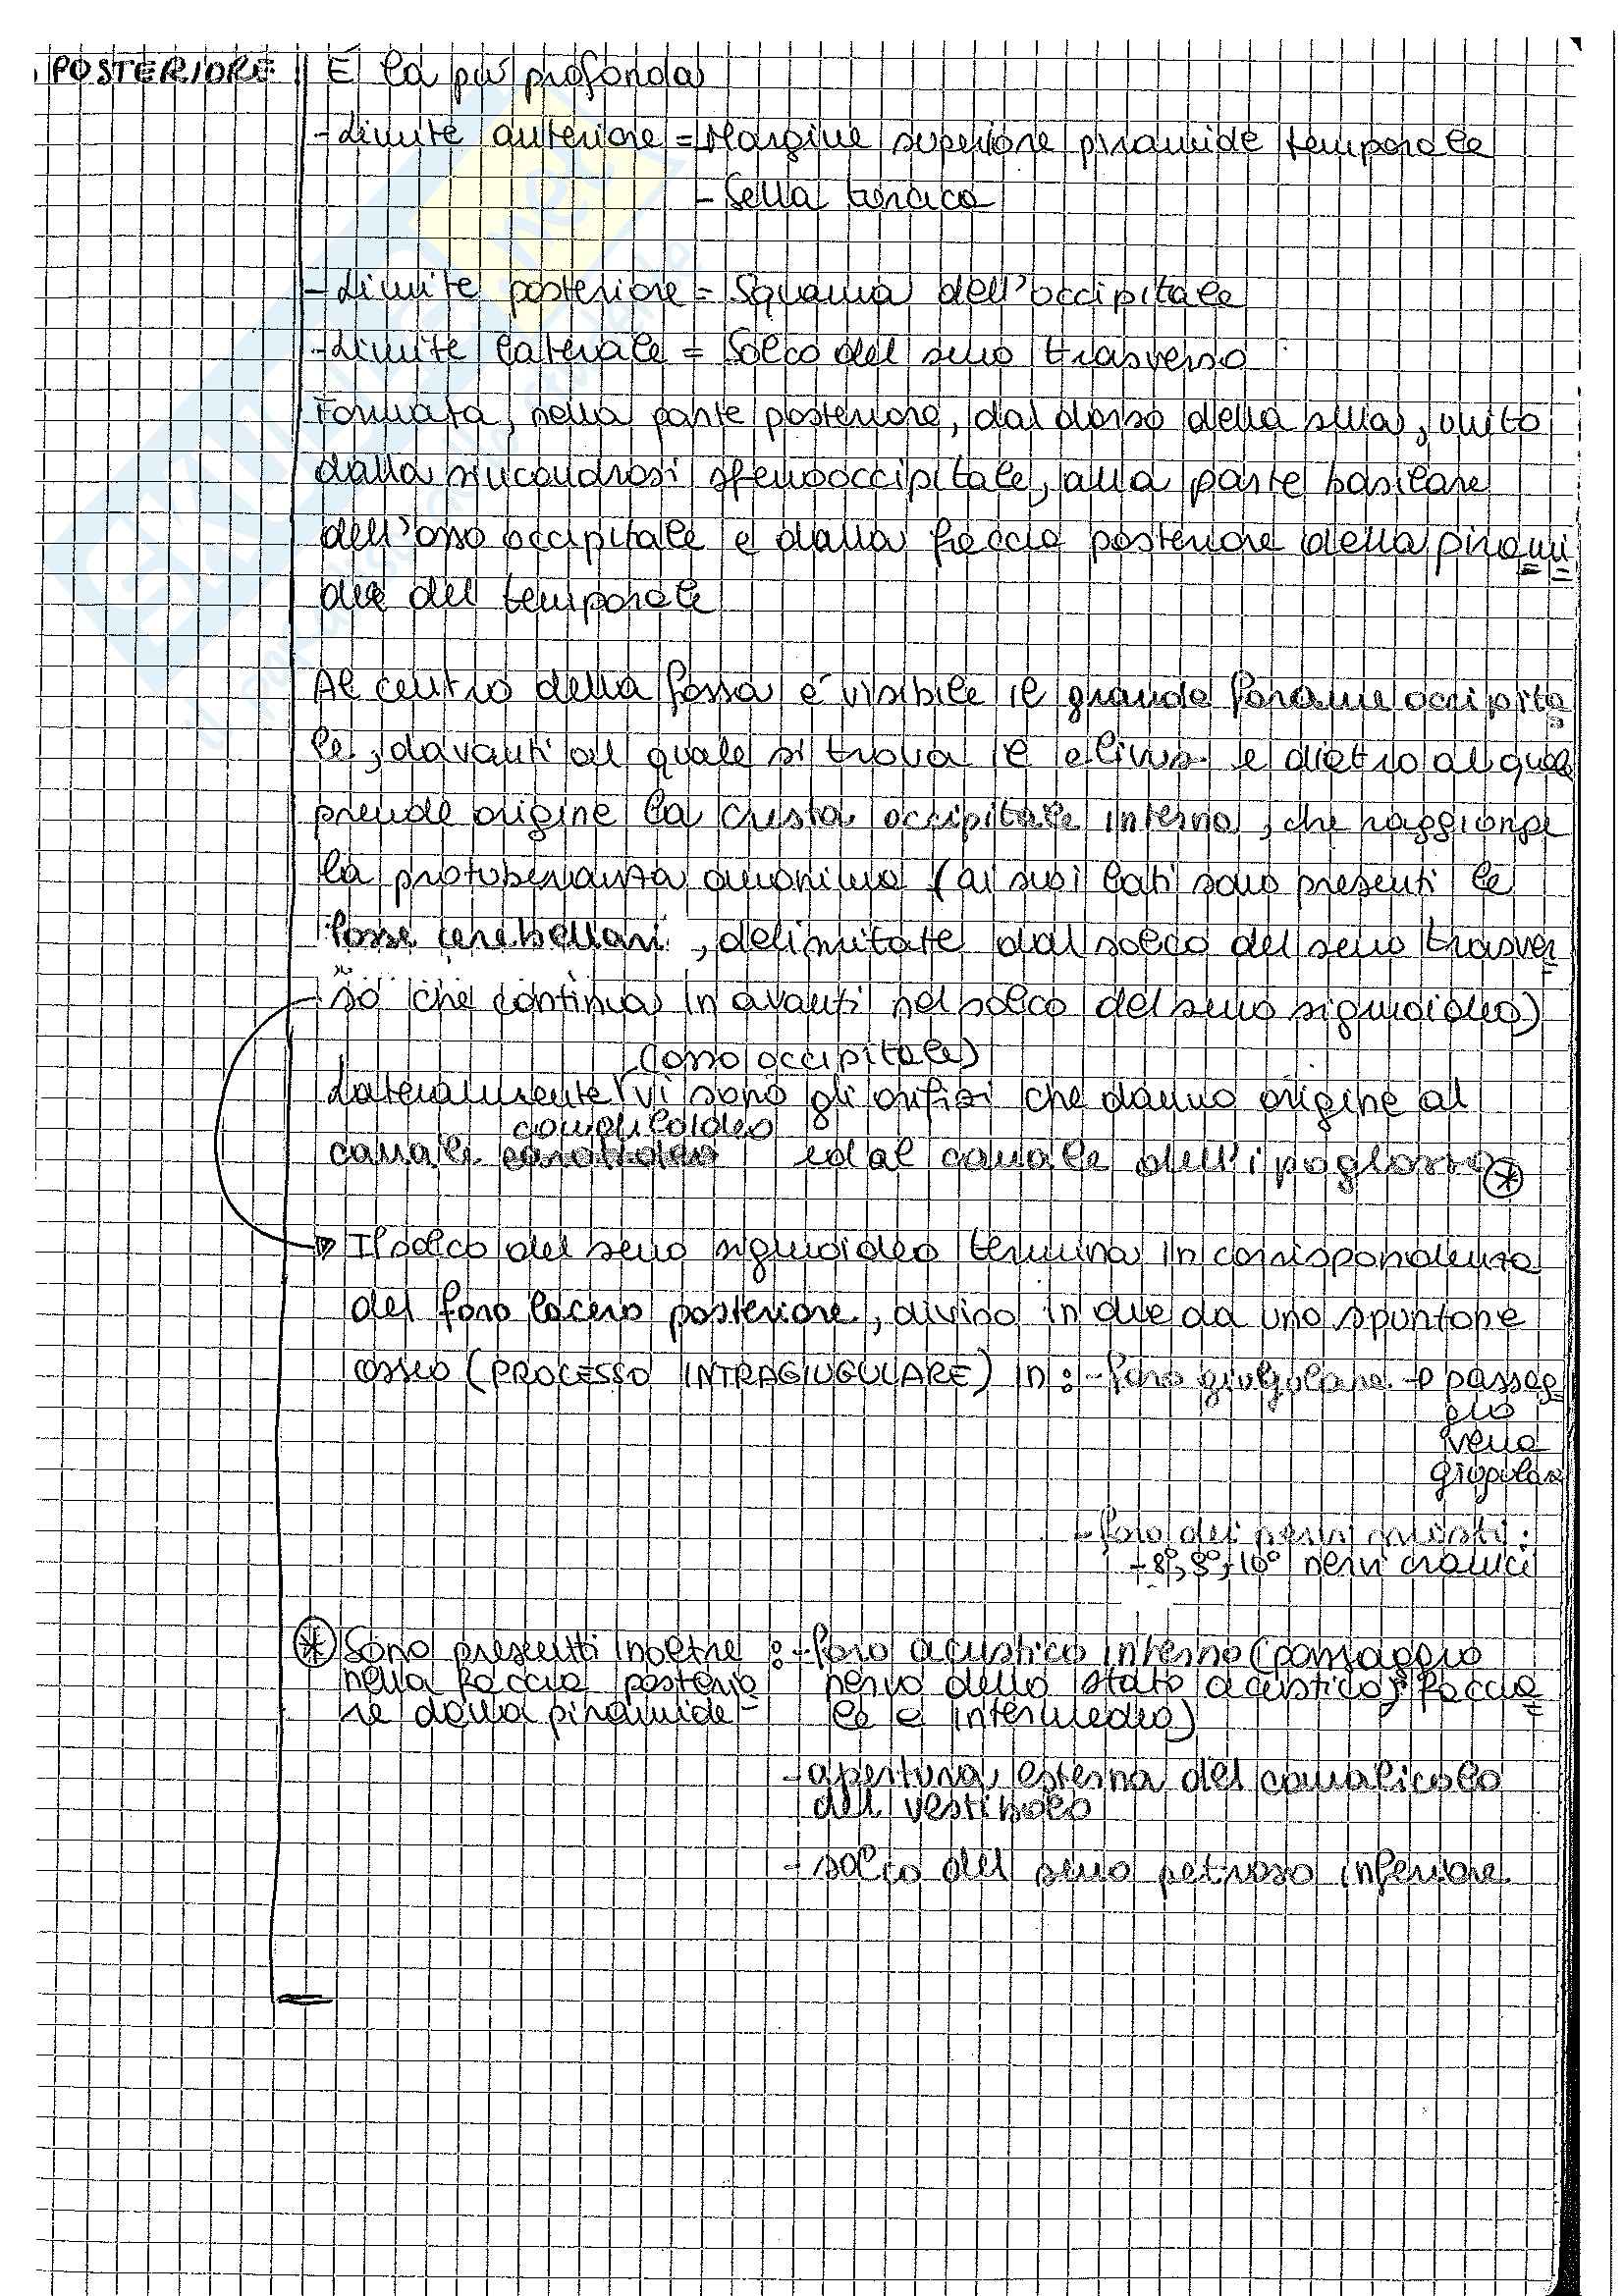 POSTERIORE : É la piú profonda
- Limite anteriore = - Margine superiore piramide temporale
- Sella turcica
- Limite posteriore = Squama dell'occipitale
- Limite laterale = Solco del seno trasverso
Formata, nella parte posteriore, dal dorso della sella, unito
dalla sincondrosi sfenooccipitale, alla parte basilare
dell'osso occipitale e dalla faccia posteriore della pirami
de del temporale
Al centro della fossa é visibile il grande forame occipita
le, davanti al quale si trova il clivus e dietro al quale
prende origine la cresta occipitale interna, che raggiunge
la protuberanza omonima (ai suoi lati sono presenti le
fosse cerebellari, delimitate dal solco del seno trasver
so che continua in avanti nel solco del seno sigmoideo)
(osso occipitale)
Lateralmente vi sono gli orifizi che danno origine al
condiloideo
canale ed al canale dell'ipoglosso *
Il solco del seno sigmoideo termina in corrispondenza
del foro lacero posteriore, diviso in due da uno spuntone
osseo (PROCESSO INTRAGIUGULARE) in : - foro giugulare → passag
gio
vena
giugulare
- foro dei nervi misti :
- 8°, 9°, 10° nervi cranici
* Sono presenti inoltre : - foro acustico interno (passaggio
nella faccia posterio nervo dello stato acustico, faccia
re della piramide le e intermedio)
- apertura esterna del canalicolo
del vestibolo
- solco del seno petroso inferiore